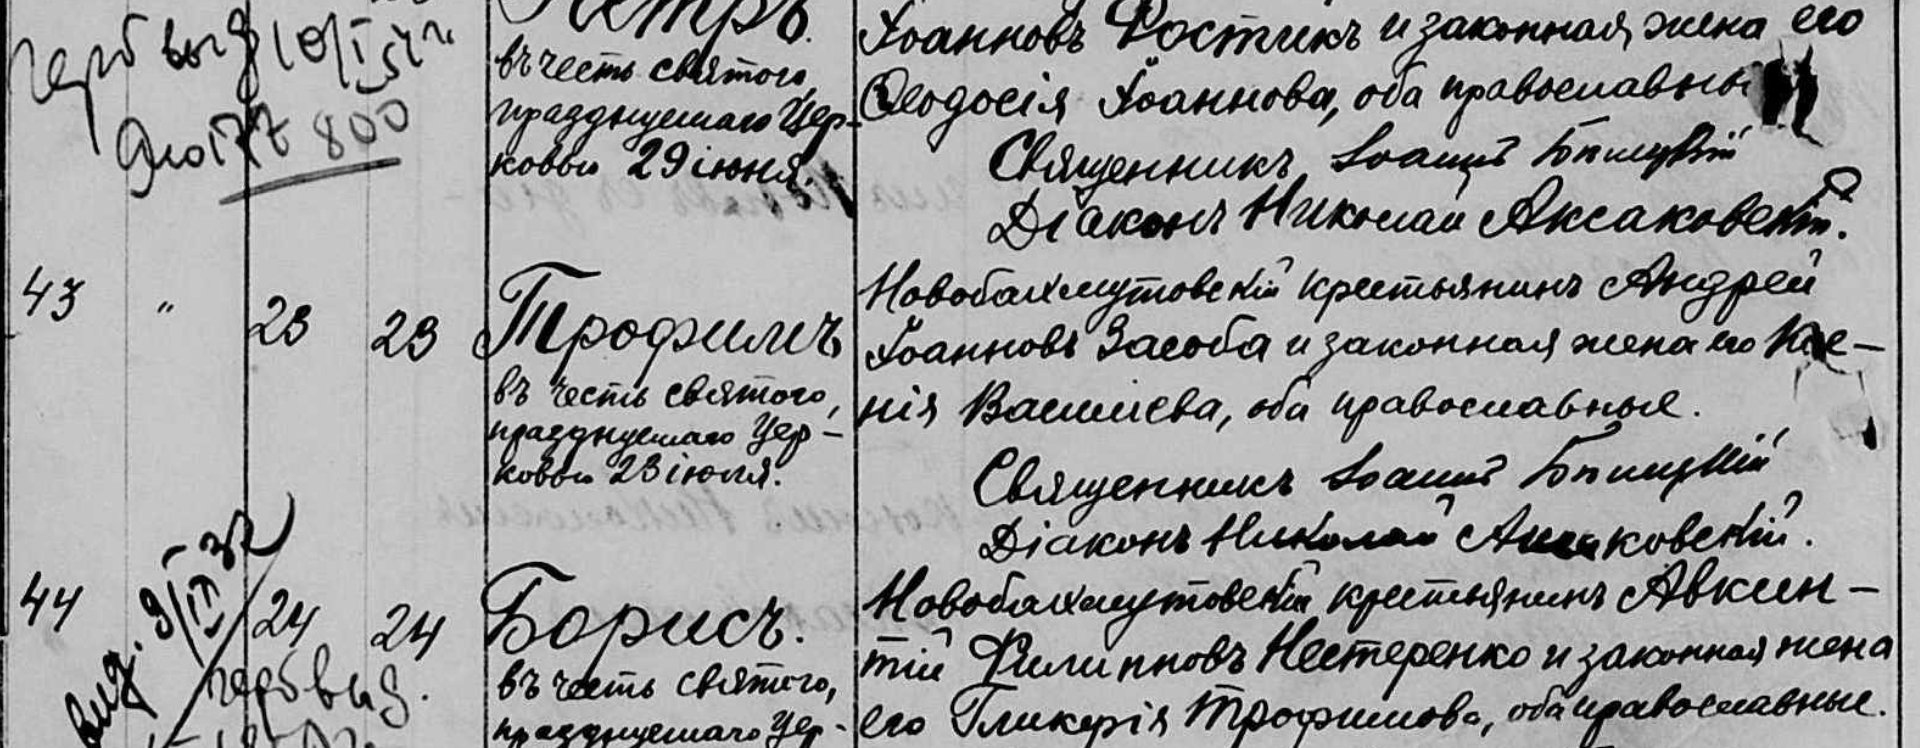 выд 10/I 54 г.
800
Петръ.
въ честь святого,
празднуемаго Цер-
ковью 29 іюня.
Іоанновъ Ростикъ и законная жена его
Ѳеодосія Іоаннова, оба православны
Священникъ Іоаннъ
Діаконъ Николай Аксаковскій.
43 " 23 23
Трофимъ
въ честь святого,
празднуемаго Цер-
ковью 23 іюля.
Новобахмутовскій крестьянинъ Андрей
Іоанновъ Засоба и законная жена его Ксе-
нія Васильева, оба православные.
Священникъ Іоаннъ
Діаконъ Николай Аксаковскій.
44 24 24
выд. 9/IX 32
Борисъ.
въ честь святого,
празднуемаго Цер-
Новобахмутовскій крестьянинъ Авкин-
тій Филипповъ Нестеренко и законная жена
его Гликерія Трофимова, оба православные.